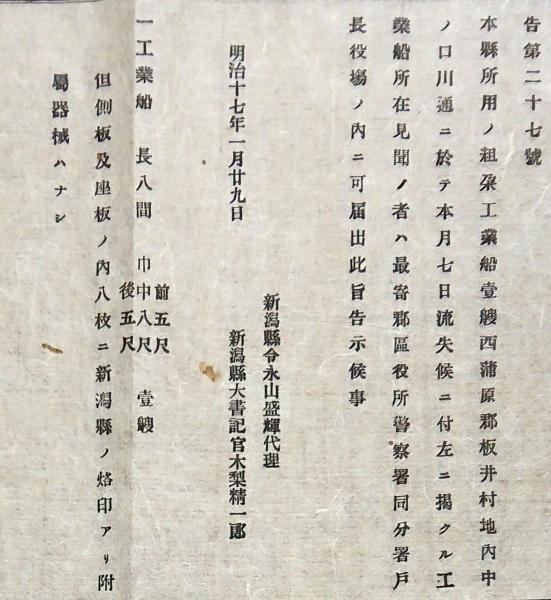 告第二十七號
本縣所用ノ粗朶工業船壹艘西蒲原郡板井村地內中
ノ口川通ニ於テ本月七日流失候ニ付左ニ揭クル工
業船所在見聞ノ者ハ最寄郡區役所警察署同分署戶
長役場ノ內ニ可届出此旨告示候事
新潟縣令永山盛輝代理
明治十七年一月廿九日
新潟縣大書記官木梨精一郎
一工業船 長八間 巾 前五尺 中八尺 後五尺 壹艘
但側板及座板ノ內八枚ニ新潟縣ノ烙印アリ附
屬器械ハナシ